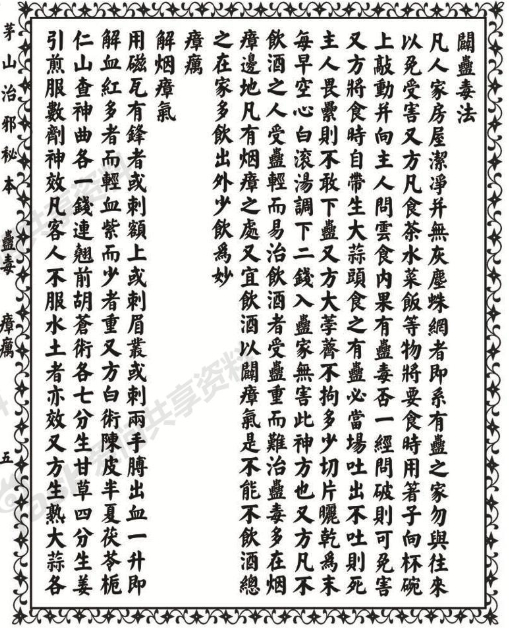 闢蠱毒法
凡人家房屋潔凈并無灰塵蛛網者即系有蠱之家勿與往來
以免受害又方凡食茶水菜飯等物將要食時用箸子向杯碗
上敲動并向主人問雲食内果有蠱毒否一經問破則可免害
又方將食時自帶生大蒜頭食之有蠱必當場吐出不吐則死
主人畏纍則不敢下蠱又方大荸薺不拘多少切片曬乾爲末
每早空心白滚湯調下二錢入蠱家無害此神方也又方凡不
飲酒之人受蠱輕而易治飲酒者受蠱重而難治蠱毒多在烟
瘴邊地凡有烟瘴之處又宜飲酒以闢瘴氣是不能不飲酒總
之在家多飲出外少飲爲妙
瘴癘
解烟瘴氣
用磁瓦有鋒者或刺額上或刺眉叢或刺兩手膊出血一升即
解血紅多者而輕血紫而少者重又方白術陳皮半夏茯苓梔
仁山查神曲各一錢連翹前胡蒼術各七分生甘草四分生姜
引煎服數劑神效凡客人不服水土者亦效又方生熟大蒜各
茅山治邪秘本 蠱毒 瘴癘 五
共享资料
共享资料